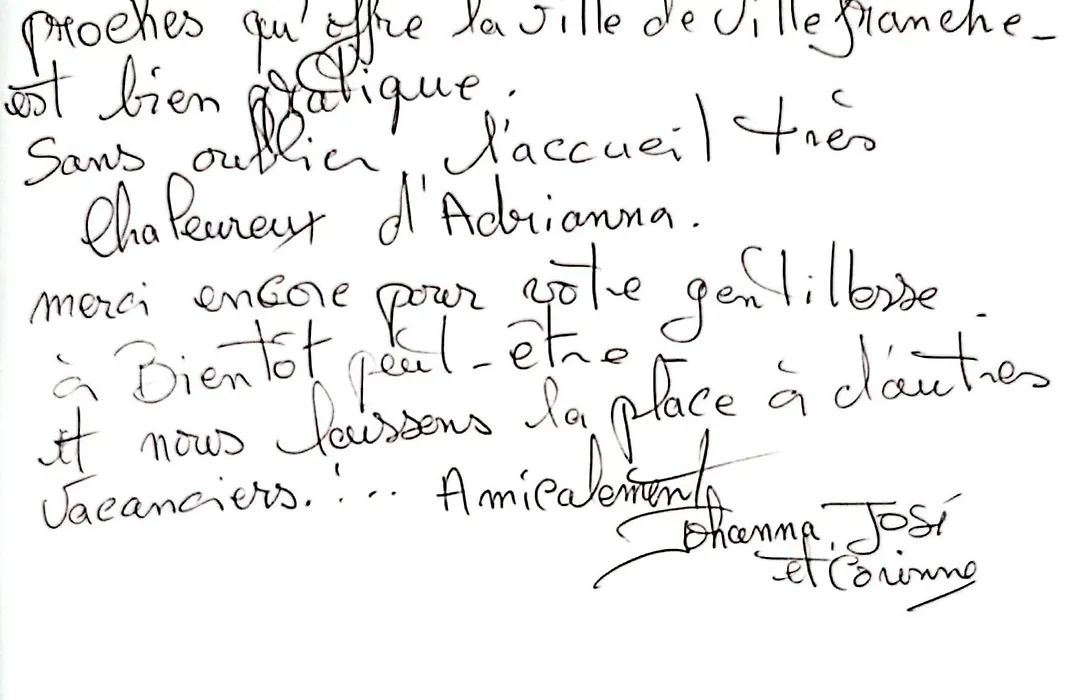 proches qu'offre la ville de Villefranche -
est bien pratique.
Sans oublier l'accueil très
Chaleureux d'Adrianna.
merci encore pour votre gentillesse.
à Bientôt peut-être
et nous laissons la place à d'autres
Vacanciers. !... Amicalement
Johanna, José
et Corinne